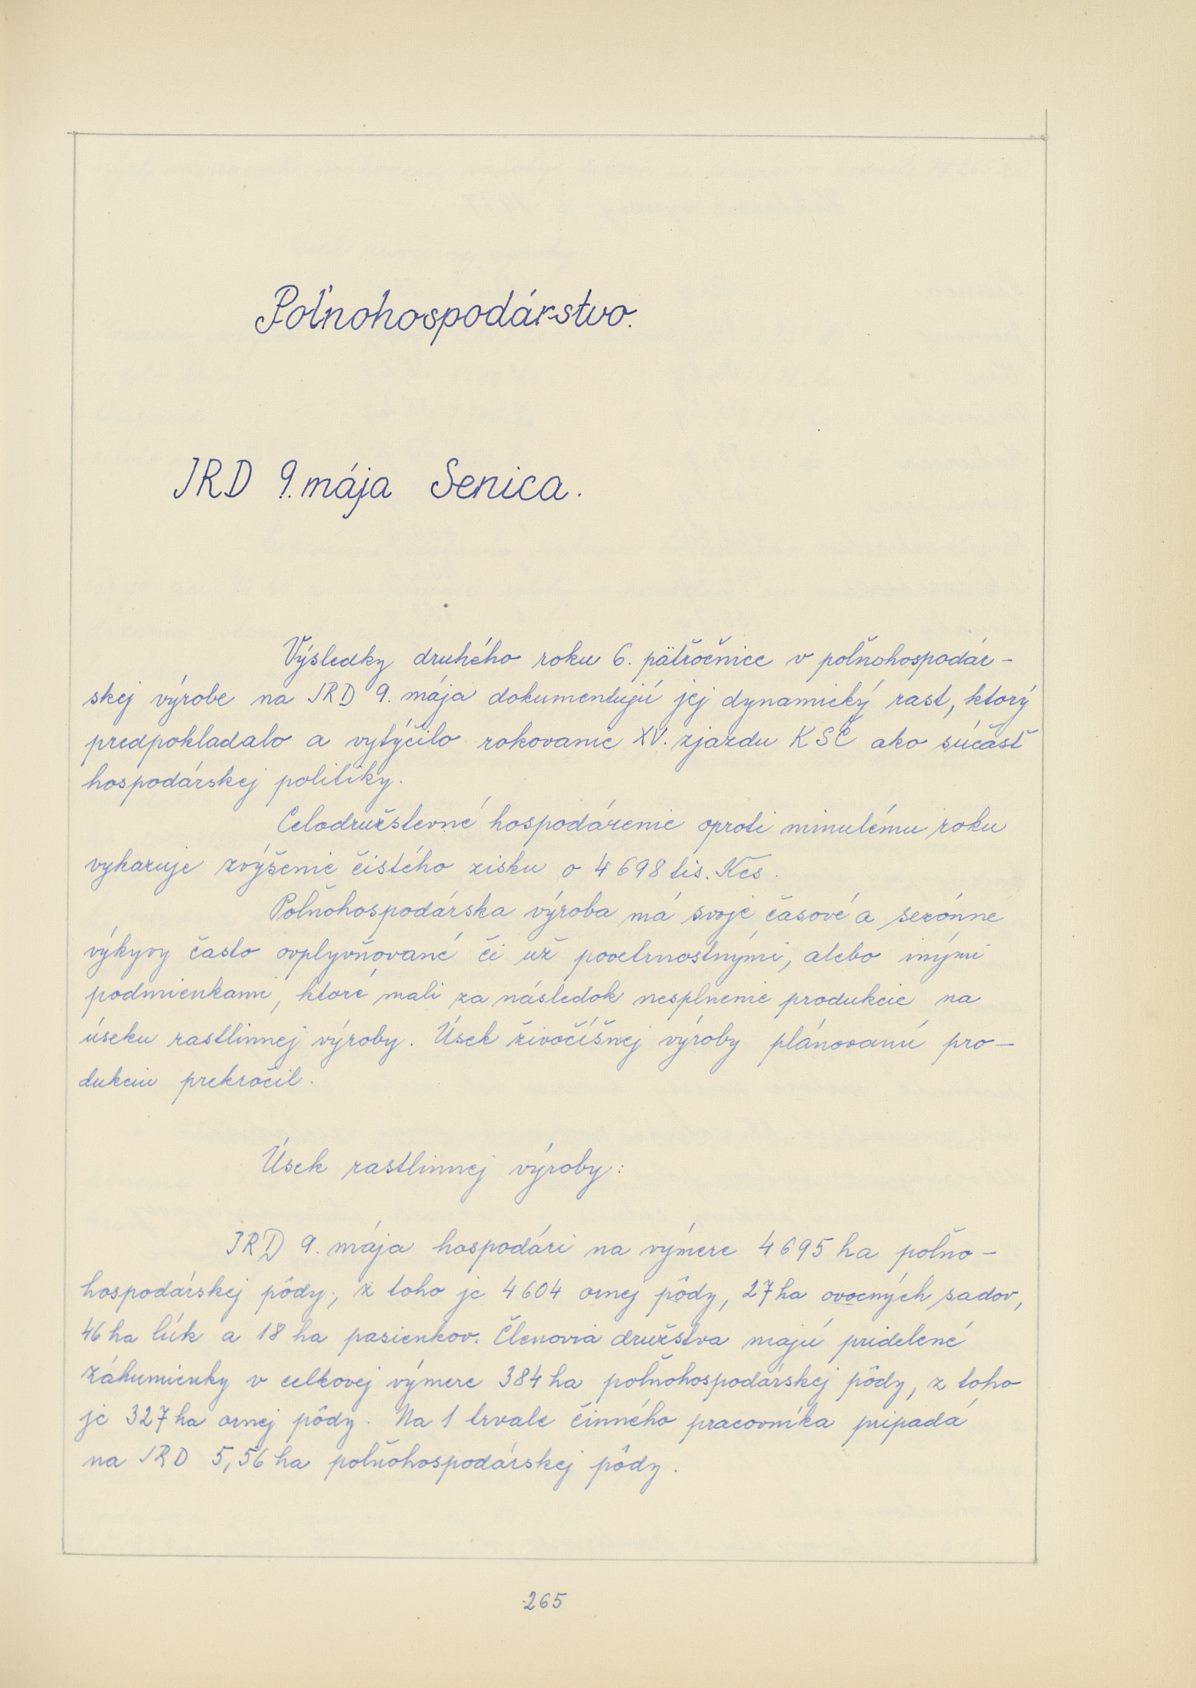 Poľnohospodárstvo.
JRD 9. mája Senica.
Výsledky druhého roku 6. päťročnice v poľnohospodár-
skej výrobe na JRD 9. mája dokumentujú jej dynamický rast, ktorý
predpokladalo a vytýčilo rokovanie XV. zjazdu KSČ ako súčasť
hospodárskej politiky.
Celodružstevné hospodárenie oproti minulému roku
vykazuje zvýšenie čistého zisku o 4 698 tis. Kčs.
Poľnohospodárska výroba má svoje časové a sezónne
výkyvy často ovplyvňované či už poveternostnými, alebo inými
podmienkami, ktoré mali za následok nesplnenie produkcie na
úseku rastlinnej výroby. Úsek živočíšnej výroby plánovanú pro-
dukciu prekročil.
Úsek rastlinnej výroby:
JRD 9. mája hospodári na výmere 4 695 ha poľno-
hospodárskej pôdy, z toho je 4 604 ornej pôdy, 27 ha ovocných sadov,
46 ha lúk a 18 ha pasienkov. Členovia družstva majú pridelené
záhumienky v celkovej výmere 384 ha poľnohospodárskej pôdy, z toho
je 327 ha ornej pôdy. Na 1 trvale činného pracovníka pripadá
na JRD 5,56 ha poľnohospodárskej pôdy.
265